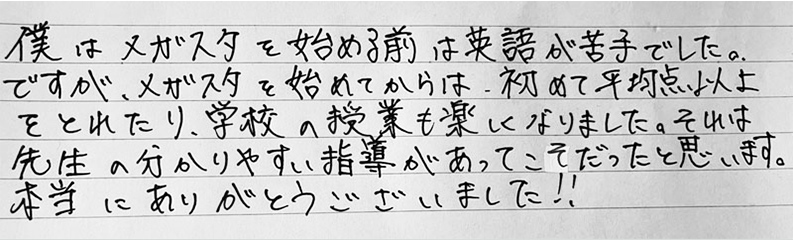 僕はメガスタを始める前は英語が苦手でした。
ですが、メガスタを始めてからは、初めて平均点以上
をとれたり、学校の授業も楽しくなりました。それは
先生の分かりやすい指導があってこそだったと思います。
本当にありがとうございました!!